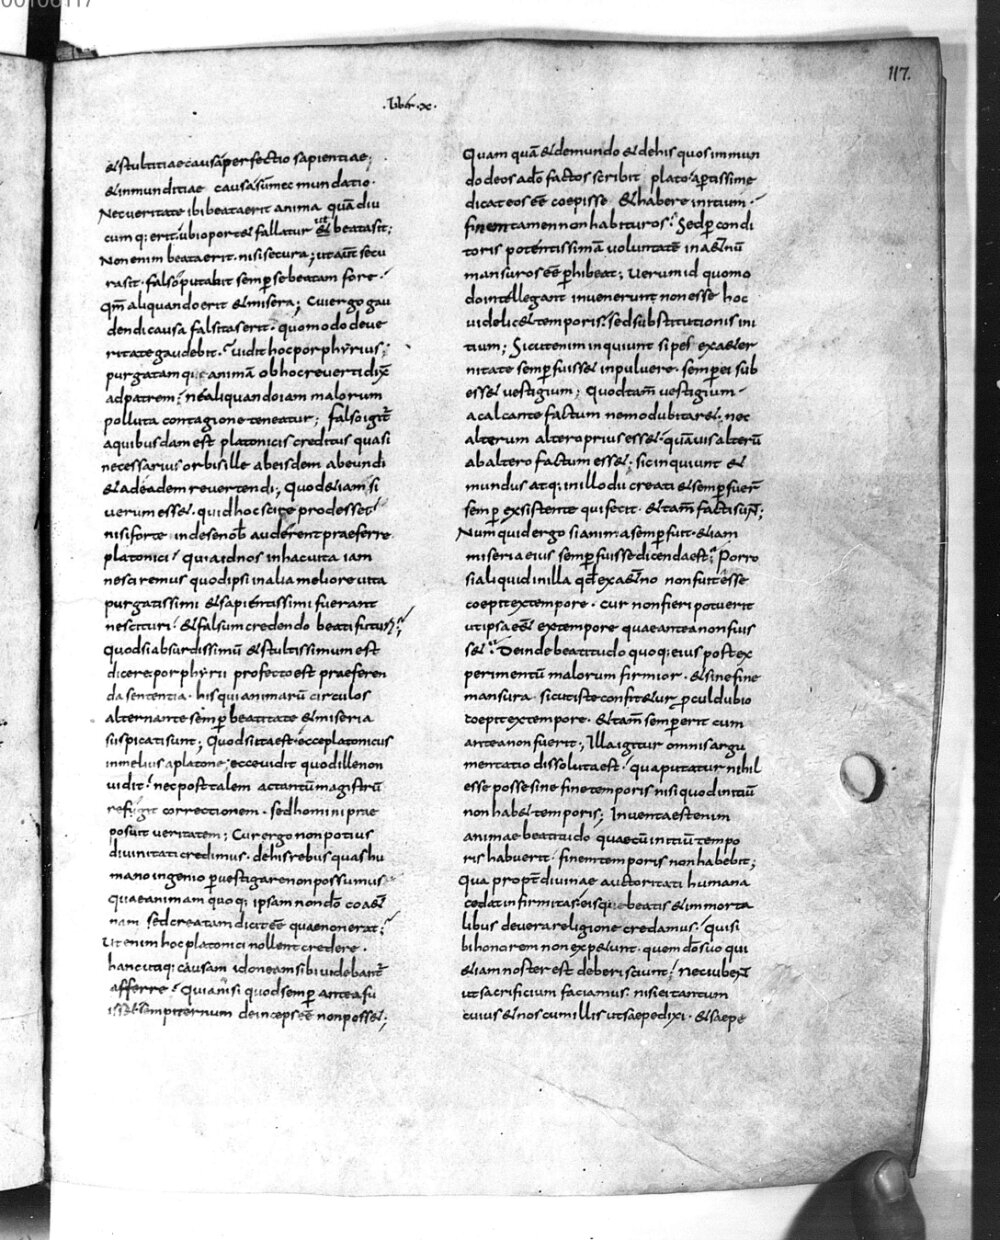 00106117
117.
.liber.x.
& stultitiae causa perfectio sapientiae;
& inmunditiae causa sum̄ec mundatio.
Nec veritate ibi beata erit anima quādiu
cumq; erit. ubi oportet fallatur ut beata sit;
Non enim beata erit. nisi secura; ut aūt secu
ra sit. falso putabit semp̄ se beatam fore.
Qm̄ aliquando erit & misera; Cui ergo gau
dendi causa falsitas erit. quomodo de ve
ritate gaudebit? vidit hoc porphyrius;
purgatamq; animā ob hoc reverti dix̄
ad patrem; ne aliquando iam malorum
polluta contagione teneatur; falso igit̄
a quibusdam est platonicis creditus quasi
necessarius orbis ille ab eisdem abeundi
& ad eadem revertendi; Quod etiam si
verum esset. quid hoc scire prodesset
nisi forte inde se nob̄ auderent praeferre
platonici? quia id nos in hac vita iam
nesciremus quod ipsi in alia meliore vita
purgatissimi & sapientissimi fuerant
nescituri. & falsum credendo beati futuri;
quod si absurdissimū & stultissimum est
dicere. porphyrii profecto est praeferen
da sententia. his qui animarū circulos
alternante semp̄ beatitate & miseria
suspicati sunt; Quod si ita est. ecce platonicus
in melius a platone; ecce vidit quod ille non
vidit; nec post talem ac tantū magistrū
refugit correctionem. sed homini prae
posuit veritatem; Cur ergo non potius
divinitati credimus. de his rebus quas hu
mano ingenio pervestigare non possumus
quae animam quoq; ipsam non dō coaet̄
nam sed creatam dicit eē quae non erat;
Ut enim hoc platonici nollent credere.
hanc utiq; causam idoneam sibi videbant̄
afferre? Quia nisi quod semp̄ antea fu
isset sempiternum deinceps eē non posset;
Quam quā & de mundo & de his quos in mun
do deos a dō factos scribit plato. apertissime
dicat eos eē coepisse & habere initium.
finem tamen non habituros; Sed per condi
toris potentissimā voluntatē in aet̄nū
mansuros eē p̄hibeat; Verum id quomo
do intellegant invenerunt non esse hoc
videlicet temporis; sed substitutionis ini
tium; Sicut enim inquiunt si pes ex aeter
nitate semp̄ fuisset in pulvere. semp̄ ei sub
esset vestigium; Quod tam̄ vestigium
a calcante factum nemo dubitaret. nec
alterum altero prius esset. quāvis alterū
ab altero factum esset. sic inquiunt &
mundus atq; in illo dii creati & semp̄ fuer̄
semp̄ exsistente qui fecit. & tam̄ facti suñ;
Numquid ergo si anima semp̄ fuit. etiam
miseria eius semp̄ fuisse dicenda est; Porro
si aliquid in illa qd̄ ex aet̄no non fuit esse
coepit ex tempore. cur non fieri potuerit
ut ipsa eēt ex tempore quae antea non fuis
set; Deinde beatitudo quoq; eius post ex
perimentū malorum firmior. & sine fine
mansura. sicut iste confitetur p̄cul dubio
coepit ex tempore. & tam̄ semp̄ erit cum
antea non fuerit; Illa igitur omnis argu
mentatio dissoluta est. qua putatur nihil
esse posse sine fine temporis nisi quod initiū
non habet temporis; Inventa est enim
animae beatitudo quae cū initiū tempo
ris habuerit. finem temporis non habebit;
Qua propt̄ divinae auctoritati humana
cedat infirmitas. eisque beatis & inmorta
libus de vera religione credamus; qui si
bi honorem non expetunt. quem dō suo qui
etiam noster est deberi sciunt; nec iubent
ut sacrificium faciamus. nisi ei tantum
cuius & nos cum illis ut saepe dixi. & saepe